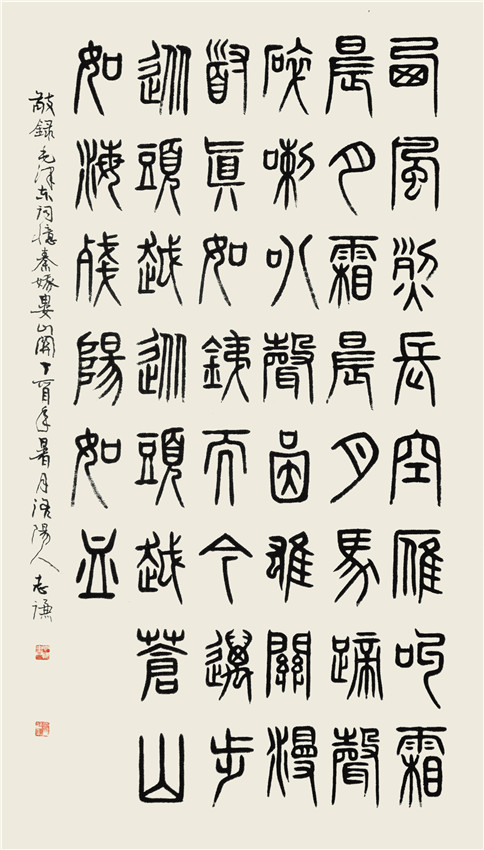 西風烈長空雁叫霜
晨月霜晨月馬蹄聲
碎喇叭聲咽雄關漫
道眞如銕而今邁步
從頭越從頭越蒼山
如海殘陽如血
敬錄毛澤东词憶秦娥婁山關丁酉年暑月洛陽人志謙